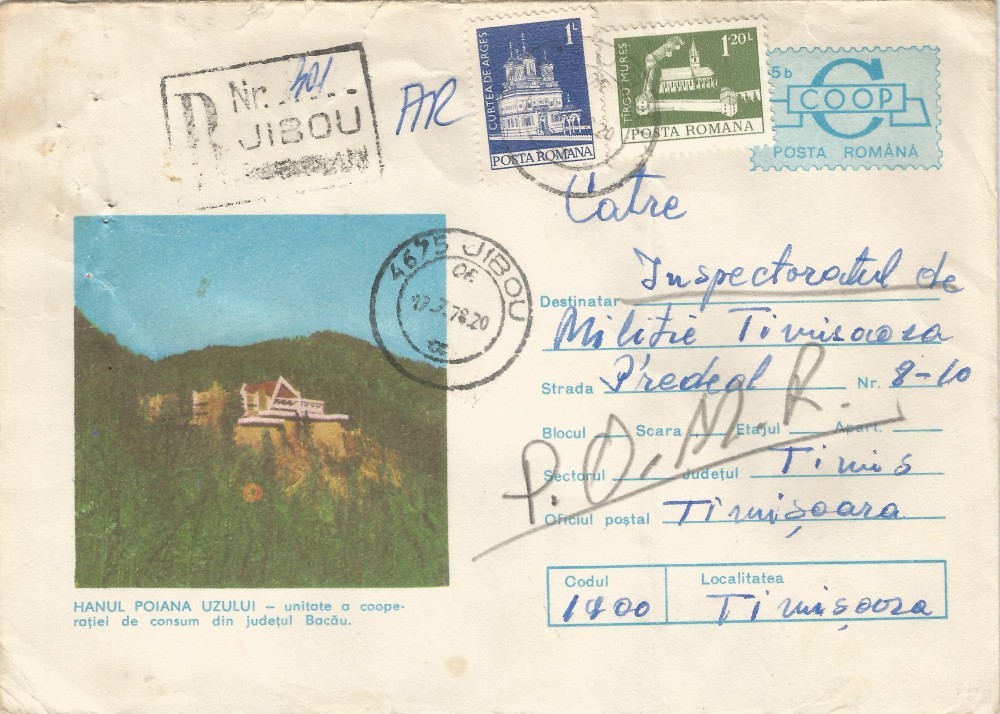 R Nr. 401
JIBOU
AR
CURTEA DE ARGEȘ
1L
POSTA ROMANA
TÎRGU MUREȘ
1·20L
POSTA ROMANA
5b
COOP
POSTA ROMÂNĂ
Catre
4675 JIBOU
78.20
Destinatar Inspectoratul de
Miliție Timisoara
Strada Predeal Nr. 8-10
Blocul Scara Etajul Apart.
P.O.M.R.
Sectorul Județul Timis
Oficiul poștal Timișoara
Codul Localitatea
1900 Timișoara
HANUL POIANA UZULUI – unitate a coope-
rației de consum din județul Bacău.